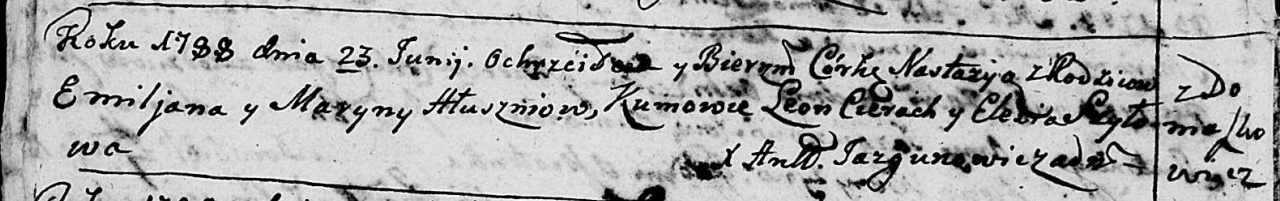 Roku 1788 dnia 23. Junij. Ochrzciłem y Bierzm Córkę Nastazyją z Rodziców z Do
Emiljana y Maryny Hłuszniow, Kumowie Leon Cierach y Elesia Szyło= ma
wa X Antt. Jazgunowicz adm= wicz